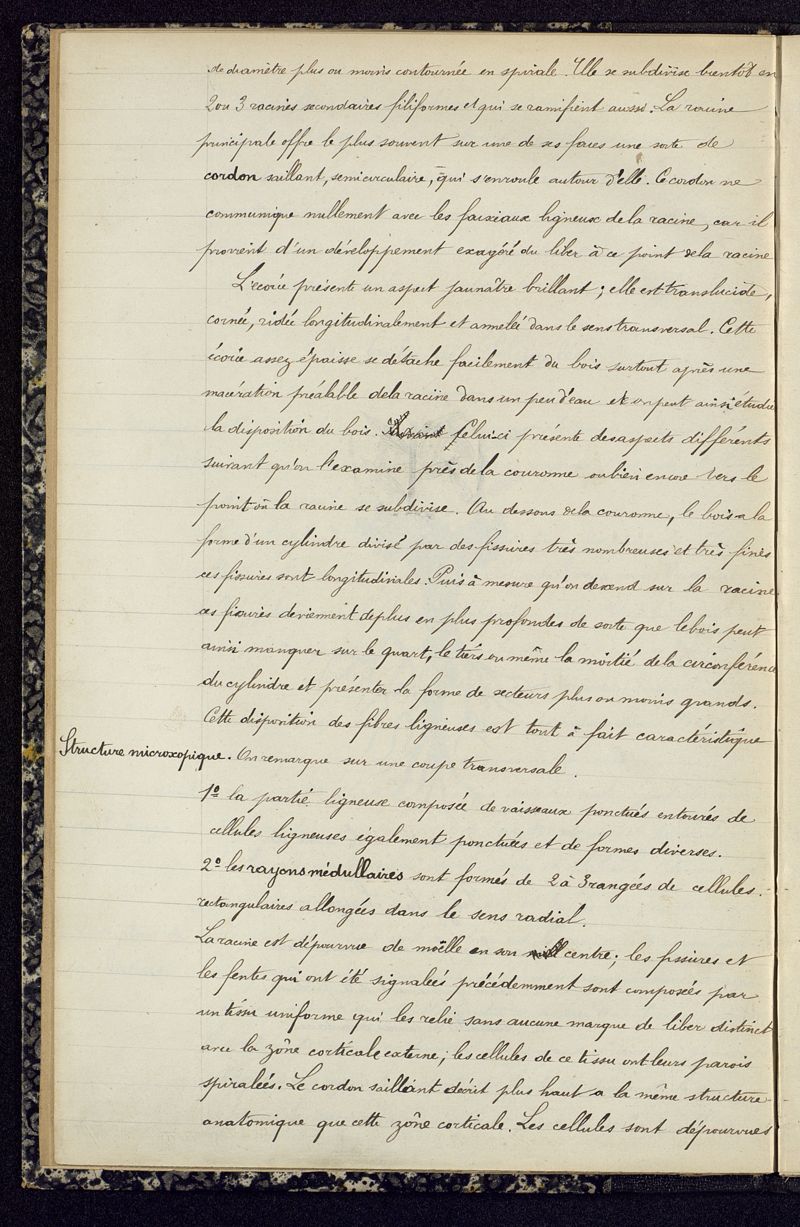 de diamètre plus ou moins contournée en spirale. Elle se subdivise bientôt en
2 ou 3 racines secondaires filiformes et qui se ramifient aussi. La racine
principale offre le plus souvent sur une de ses faces une sorte de
cordon saillant, semicirculaire, qui s'enroule autour d'elle. Ce cordon ne
communique nullement avec les faisceaux ligneux de la racine, car il
provient d'un développement exagéré du liber à ce point de la racine
L'écorce présente un aspect jaunâtre brillant ; elle est translucide,
cornée, ridée longitudinalement et annelée dans le sens transversal. Cette
écorce assez épaisse se détache facilement du bois surtout après une
macération préalable de la racine dans un peu d'eau et on peut ainsi étudier
la disposition du bois. Celui ci présente des aspects différents
suivant qu'on l'examine près de la couronne ou bien encore vers le
point où la racine se subdivise. Au dessous de la couronne, le bois a la
forme d'un cylindre divisé par des fissures très nombreuses et très fines
ces fissures sont longitudinales. Puis à mesure qu'on descend sur la racine
ces fissures deviennent de plus en plus profondes de sorte que le bois peut
ainsi manquer sur le quart, le tiers ou même la moitié de la circonférence
du cylindre et présenter la forme de secteurs plus ou moins grands.
Cette disposition des fibres ligneuses est tout à fait caractéristique
Structure microscopique. On remarque sur une coupe transversale.
1º la partie ligneuse composée de vaisseaux ponctués entourés de
cellules ligneuses également ponctuées et de formes diverses.
2º les rayons médullaires sont formés de 2 à 3 rangées de cellules.
rectangulaires allongées dans le sens radial.
La racine est dépourvue de moëlle en son centre ; les fissures et
les fentes qui ont été signalées précédemment sont composées par
un tissu uniforme qui les relie sans aucune marque de liber distinct
avec la zône corticale externe ; les cellules de ce tissu ont leurs parois
spiralées. Le cordon saillant décrit plus haut a la même structure
anatomique que cette zône corticale. Les cellules sont dépourvues